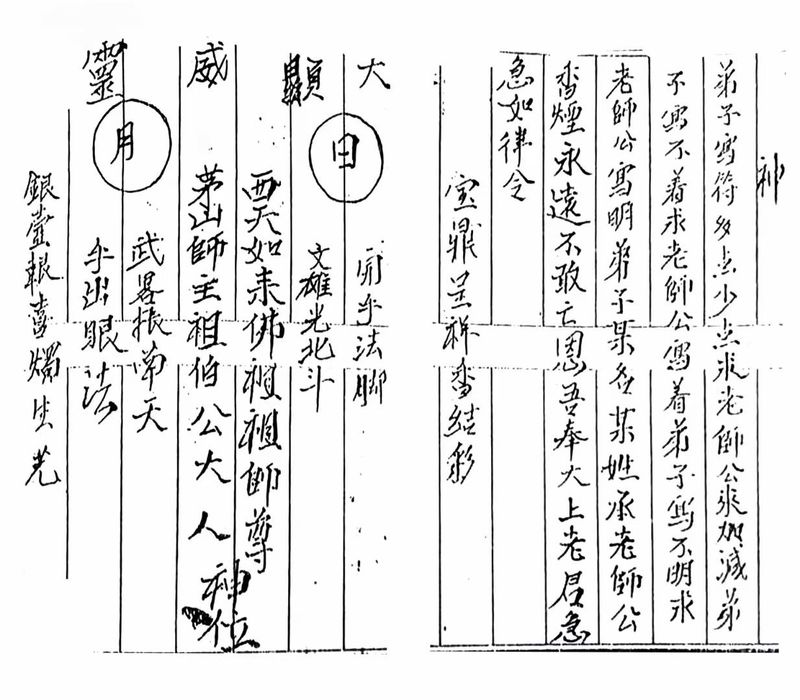 神
弟子寫符多点少点求老師公來加減弟
不寫不着求老師公寫着弟子寫不明求
老師公寫明弟子某名某姓承老師公
香煙永遠不敢亡恩吾奉大上老君急
急如律令
宝鼎呈祥香結彩
大
法脚
顯
日
文雄光北斗
西天如来佛祖祖師尊
威
茅山師主祖伯公大人神位
武畧振南天
靈
月
出眼法
銀壹報喜燭生光